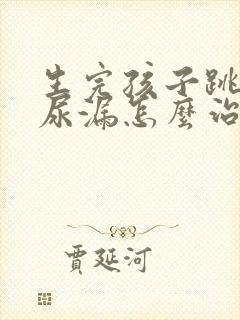 生完孩子跳
尿漏怎麼治
賈延河